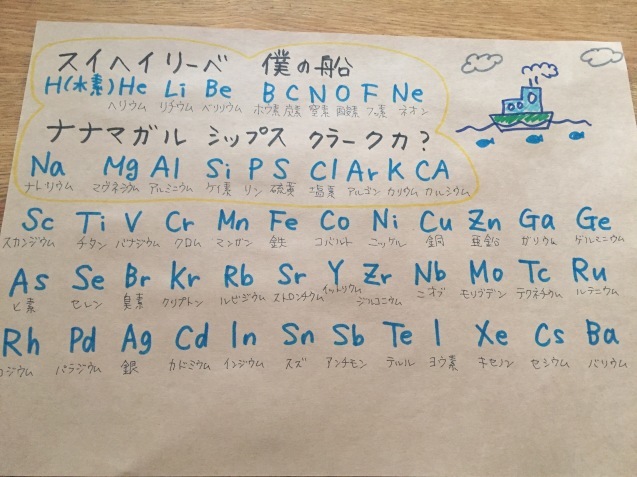 スイヘイリーベ 僕の船
H(水素) He Li Be B C N O F Ne
ヘリウム リチウム ベリリウム ホウ素 炭素 窒素 酸素 フッ素 ネオン
ナナマガル シップス クラークカ?
Na Mg Al Si P S Cl Ar K CA
ナトリウム マグネシウム アルミニウム ケイ素 リン 硫黄 塩素 アルゴン カリウム カルシウム
Sc Ti V Cr Mn Fe Co Ni Cu Zn Ga Ge
スカンジウム チタン バナジウム クロム マンガン 鉄 コバルト ニッケル 銅 亜鉛 ガリウム ゲルマニウム
As Se Br Kr Rb Sr Y Zr Nb Mo Tc Ru
ヒ素 セレン 臭素 クリプトン ルビジウム ストロンチウム イットリウム ジルコニウム ニオブ モリブデン テクネチウム ルテニウム
Rh Pd Ag Cd In Sn Sb Te I Xe Cs Ba
ジウム パラジウム 銀 カドミウム インジウム スズ アンチモン テルル ヨウ素 キセノン セシウム バリウム